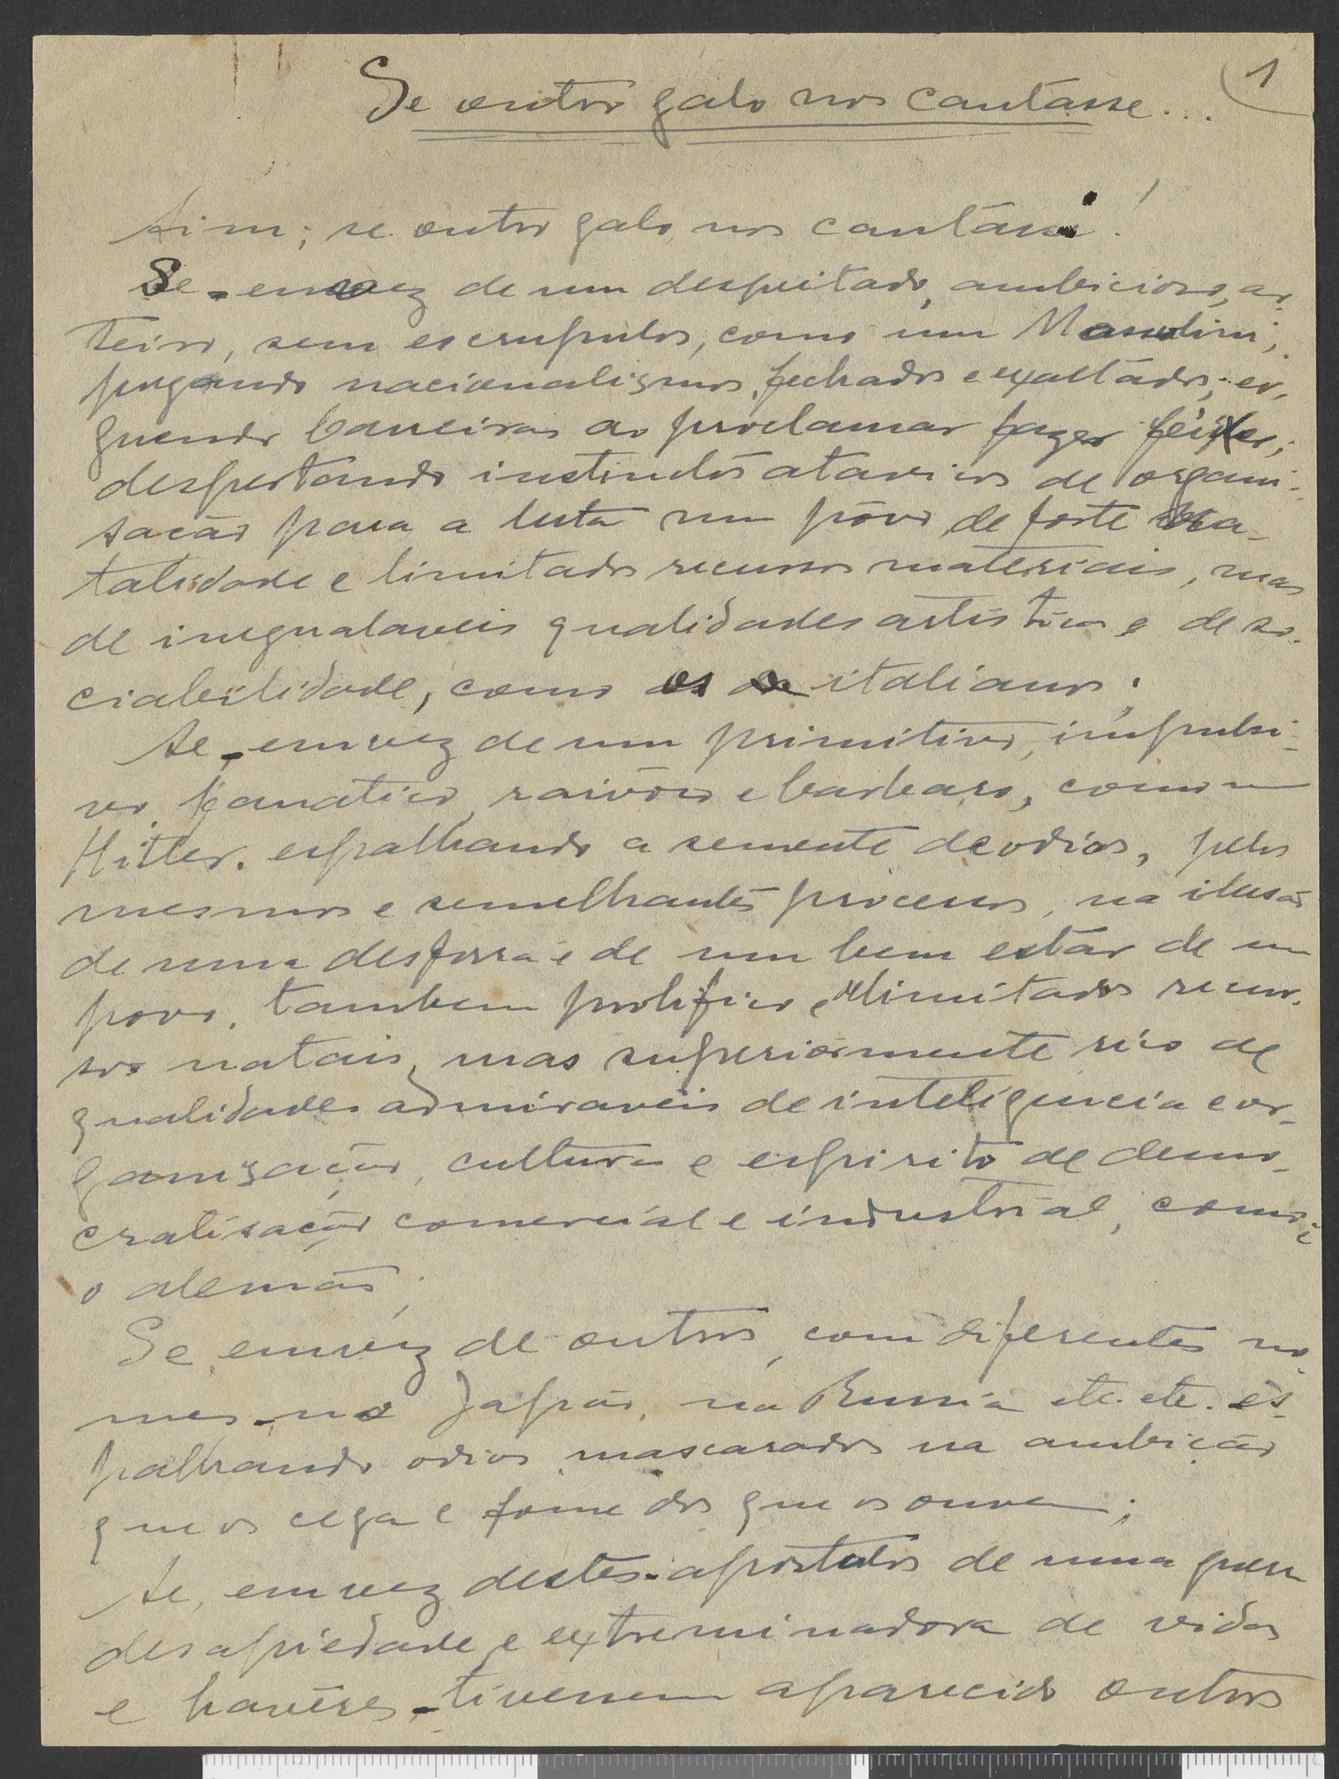 1
Se outro galo nos cantásse...
Sim; se outro galo nos cantára!
Se-em vez de um despeitado, ambicioso, ar-
teiro, sem escrupulos, como um Mussolini;
pregando nacionalismos fechados e exaltádos; er-
guendo barreiras ao proclamar fazer feixes;
despertando instindos atavicos de organi-
sacão para a luta num pôvo de forte na-
talidade e limitados recursos materiais, mas
de inegualaveis qualidades artisticas e de so-
ciabilidade, como os italianos;
Se-em vez de um primitivo, impulsi-
vo, fanatico, raivôso e barbaro, como um
Hitler, espalhando a semente de odios, pelos
mesmos e semelhantes processos, na ilusão
de uma desforra e de um bem estár de um
povo, tambem prolifico e limitados recur-
sos natais, mas superiormente rico de
qualidades admiraveis de inteligencia e or-
ganização, cultura e espirito de demo-
cratisação comercial e industrial, como é
o alemão;
Se em vez de outros, com diferentes no-
mes no Japão, na Russia etc. etc. es-
palhando odios mascarados na ambicão
que os cega e fome dos que os ouvem;
Se, em vez destes apostolos de uma guerra
desapiedade e extreminadora de vidas
e havêres-tivessem aparecido outros